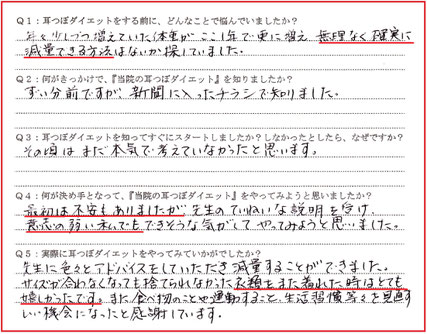 Q1：耳つぼダイエットをする前に、どんなことで悩んでいましたか？
年々少しづつ増えていた体重が、ここ1年で更に増え、無理なく確実に
減量できる方法はないか探していました。
Q2：何がきっかけで、『当院の耳つぼダイエット』を知りましたか？
ずい分前ですが、新聞に入ったチラシで知りました。
Q3：耳つぼダイエットを知ってすぐにスタートしましたか？しなかったとしたら、なぜですか？
その頃はまだ本気で考えていなかったと思います。
Q4：何が決め手となって、『当院の耳つぼダイエット』をやってみようと思いましたか？
最初は不安もありましたが、先生のていねいな説明を受け、
意志の弱い私でもできそうな気がしてやってみようと思いました。
Q5：実際に耳つぼダイエットをやってみていかがでしたか？
先生に色々とアドバイスをしていただき減量することができました。
サイズが合わなくなっても捨てられなかった衣類をまた着れた時はとても
嬉しかったです。また食べ物のことや運動すること、生活習慣等々を見直す
いい機会になったと感謝しています。